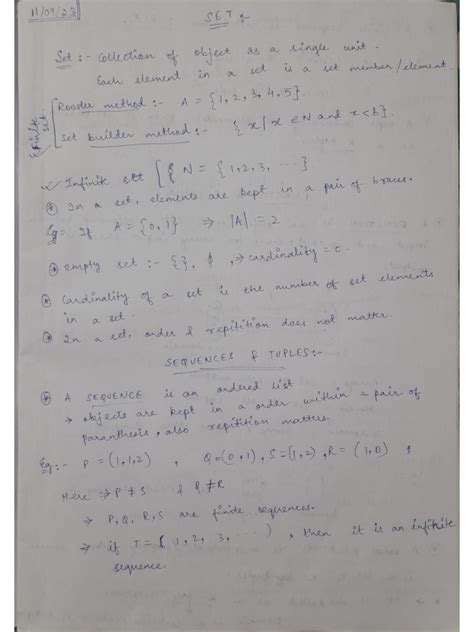 11/09/23
SET :-
Set :- Collection of object as a single unit.
Each element in a set is a set member/element.
(Finite set)
Roaster method :- A = {1, 2, 3, 4, 5}.
Set builder method :- { x | x ∈ N and x < 6}.
Infinite set [ { N = {1, 2, 3, ...}
⊛ In a set, elements are kept in a pair of braces.
Eg:- If A = {0, 1} ⇒ |A| = 2
⊛ empty set :- { }, ϕ, → cardinality = 0.
⊛ Cardinality of a set is the number of set elements
in a set.
⊛ In a set, order & repitition does not matter.
SEQUENCES & TUPLES:-
⊛ A SEQUENCE is an ordered list
→ objects are kept in a order within a pair of
paranthesis, also repitition matters.
Eg:- P = (1, 1, 2) , Q = (0, 1), S = (1, 2), R = (1, 0)
Here :→ P ≠ S & Q ≠ R
→ P, Q, R, S are finite sequences.
→ if T = ( 1, 2, 3, ... ) , then it is an infinite
sequence.